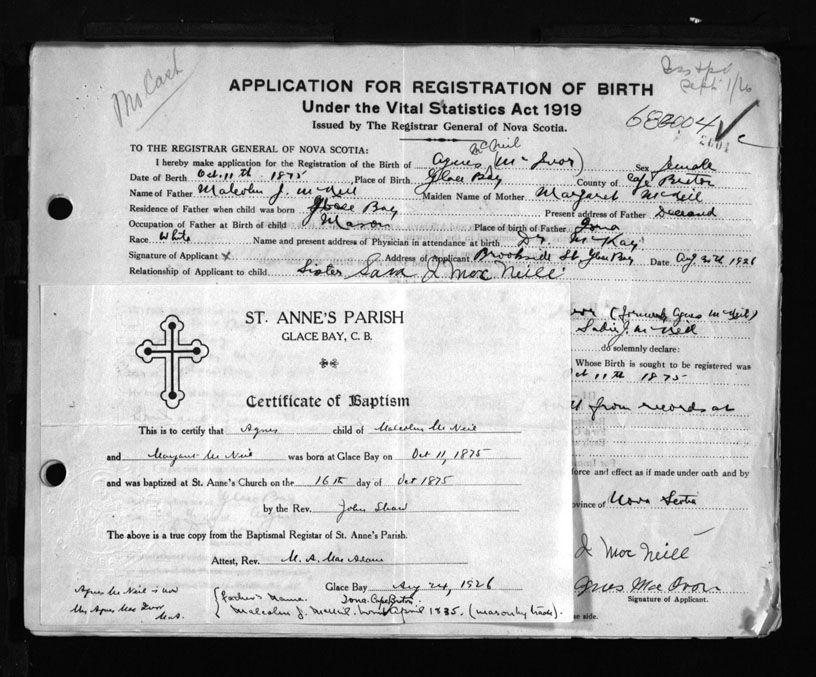 Mo Cash
Sept 1/26
APPLICATION FOR REGISTRATION OF BIRTH
Under the Vital Statistics Act 1919
Issued by The Registrar General of Nova Scotia.
TO THE REGISTRAR GENERAL OF NOVA SCOTIA:
McNeil
I hereby make application for the Registration of the Birth of Agnes (McIvor) Sex Female
Date of Birth Oct. 11th 1875 Place of Birth Glace Bay County of Cape Breton
Name of Father Malcolm J. McNeil Maiden Name of Mother Margaret McNeil
Residence of Father when child was born Glace Bay Present address of Father Deceased
Occupation of Father at Birth of child Mason Place of birth of Father Iona
Race White Name and present address of Physician in attendance at birth Dr. McKay
Signature of Applicant x Address of Applicant Brookside St. Glace Bay Date Aug 20th 1926
Relationship of Applicant to child Sister J Mac Neill
(formerly Agnes McNeil)
Sadie J. McNeil
do solemnly declare:
Whose Birth is sought to be registered was
Oct 11th 1875
from records at
force and effect as if made under oath and by
ovince of Nova Scotia
J Mac Neill
Agnes Mac Ivor
Signature of Applicant.
se side.
ST. ANNE'S PARISH
GLACE BAY, C. B.
Certificate of Baptism
This is to certify that Agnes child of Malcolm McNeil
and Margaret McNeil was born at Glace Bay on Oct 11, 1875
and was baptized at St. Anne's Church on the 16th day of Oct 1875
by the Rev. John Shaw
The above is a true copy from the Baptismal Registar of St. Anne's Parish.
Attest, Rev. M. A. MacAdam
Glace Bay Aug 24, 1926
Agnes McNeil is now
Mrs Agnes Mac Ivor
M.A.
Father's Name. Iona Cape Breton
Malcolm J. McNeil. born April 1835. (mason by trade).